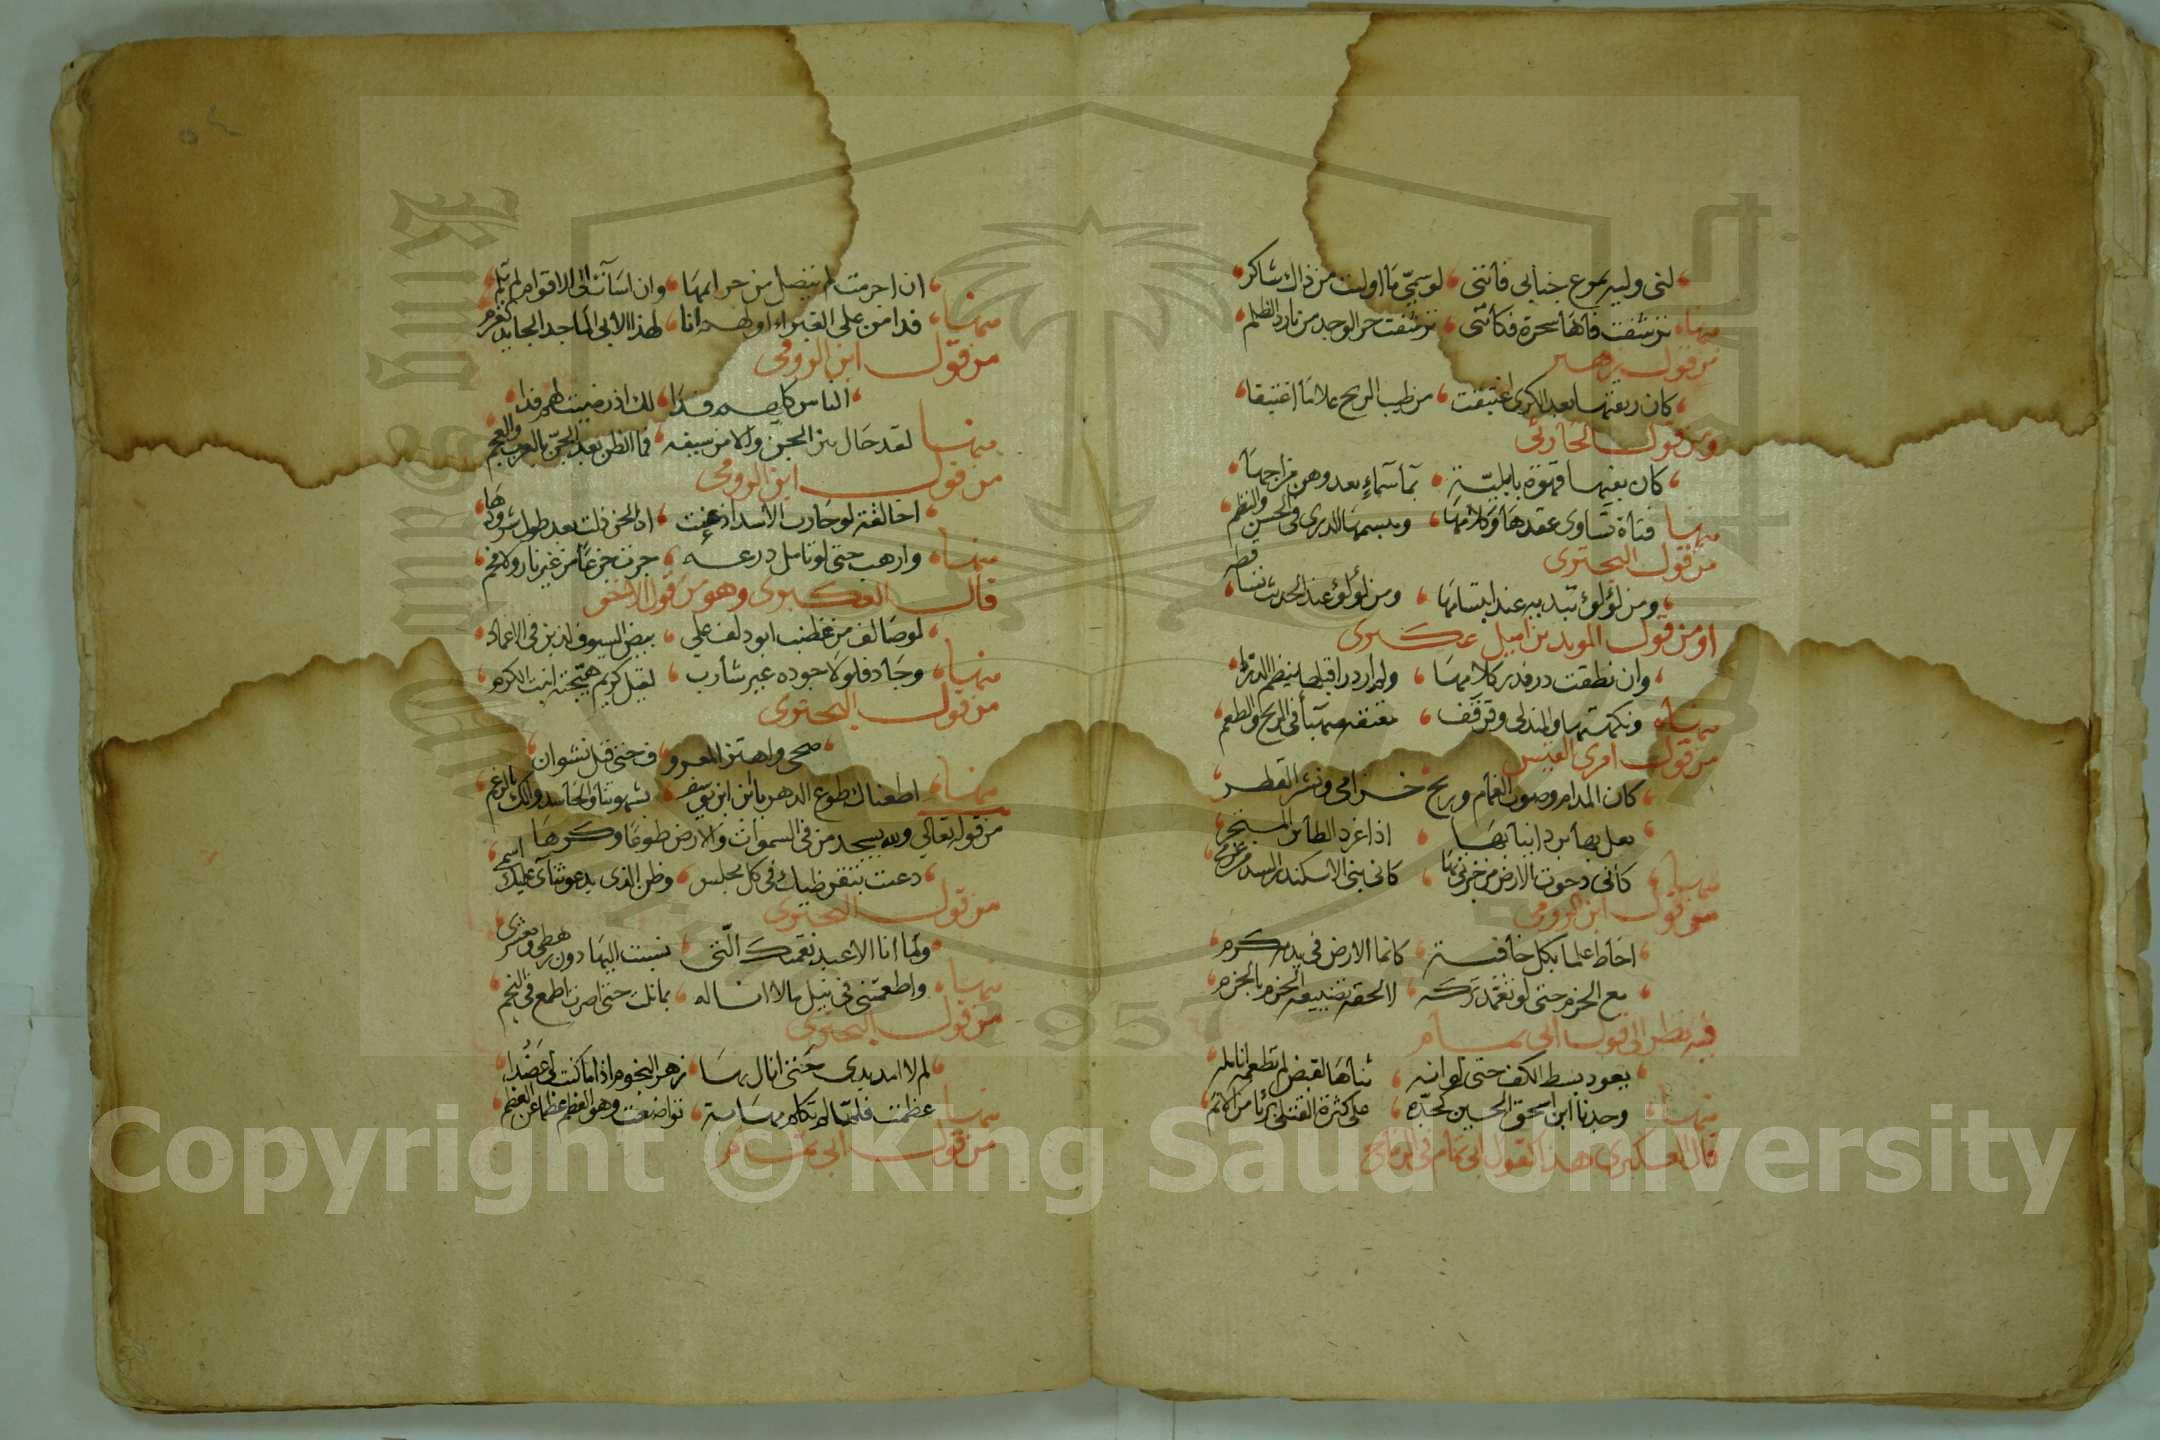 لئن وليه بموع جنابي فانني لوسمي ما اوليت من ذاك شاكر
منها ترشفت فاها سحرة فكأنني ترشفت حر الوجد من بارد الظلم
من قول زهير
كان ريقتها بعد الكرى اغتبقت من طيب الريح علا ما اغتبقا
ومن قول الحارثي
كان بفيها قهوة بابلية بمآ سمآء بعد وهن مزاجها
منها فتاة تساوى عقدها وكلامها ومبسمها الدرى فى الحسن والنظم
من قول البحترى
ومن لؤلؤ تبديه عند ابتسامها ومن لؤلؤ عند الحديث تساقطه
او من قول المويد بن اميل عسكرى
وان نطقت در فدر كلامها ولم ار درا قبلها ينظم الدرا
منها ونكهتها والمندلى وقرقف معتقة صهبآ فى الريح والطعم
من قول امرئ القيس
كان المدام وصوب الغمام وريح خزامى ونشر القطر
يعل بها برد انيابها اذا غرد الطائر المستحر
منها كأنى دحوت الارض من خبرتى بها كانى بنى الاسكندر السد من عزمى
من قول ابن الرومى
احاط علما بكل خافية كانما الارض فى يديه كره
مع الحزم حتى لو تعمد تركه لالحقه تضييعه الحزم بالحزم
فيه نظر الى قول ابى تمام
تعود بسط الكف حتى لو انه ثناها لقبض لم تطعه انامله
منها وجدنا ابن اسحق الحسين كجده على كثرة القتلى بريا من الاثم
قال العكبرى هذا كقول ابى تمام فى الرماح
ان اجرمت لم تنصل من جرائمها وان اسآت الى الاقوام لم تلم
منها
من قول ابن الرومى
الناس كلهم فدا لك اذ رضيت لهم فدا
منها لقد حال بين الجن والامن سيفه فما الظن بعد الجن بالعرب والعجم
من قول ابن الرومى
اخافته لو حارب الاسد اذعنت اذ الجن ذلت بعد طول شرودها
منها وارهب حتى لو تامل درعه جرت جزعا من غير نار ولا فحم
قال العكبرى وهو من قول الاخر
لوصال من غضب ابو دلف على بيض السيوف لذبن فى الاغماد
منها وجاد فلولا جوده غير شارب لقيل كريم هيجته ابنة الكرم
من قول البحترى
صحى واهتز للمعرو ف حتى قيل نشوان
منها اطعناك طوع الدهر يا بن ابن يوسف بشهوتنا والحاسدو لك بالرغم
من قوله تعالى ولله يسجد من فى السموات والارض طوعا وكرها
دعيت بتقريظيك فى كل مجلس وظن الذى يدعو ثنآى عليك اسمى
من قول البحترى
وما انا الا عبد نعمتك التى نسبت اليها دون رهطى ومعشرى
منها واطعمتنى فى نيل ما لا اناله بما نلت حتى صرت اطمع فى النجم
من قول البحترى
لم لا امد يدى حتى انال بها زهر النجوم اذا ما كنت لى عضدا
منها عظمت فلما لم تكلم مهابة تواضعت وهو العظم عظما عن العظم
من قول ابى تمام
Copyright © King Saud University
1957